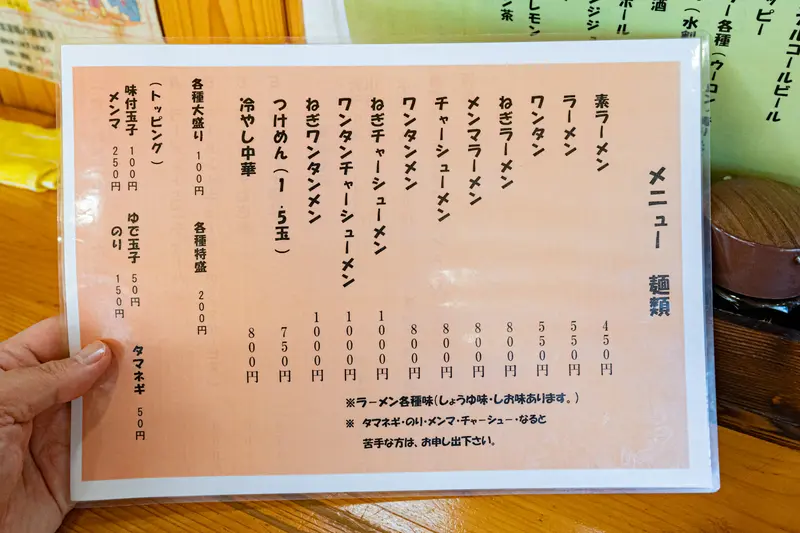 メニュー 麺類
素ラーメン 450円
ラーメン 550円
ワンタン 550円
ねぎラーメン 800円
メンマラーメン 800円
チャーシューメン 800円
ワンタンメン 800円
ねぎチャーシューメン 1000円
ワンタンチャーシューメン 1000円
ねぎワンタンメン 1000円
つけめん(1.5玉) 750円
冷やし中華 800円
※ラーメン各種味(しょうゆ味・しお味あります。)
※ タマネギ・のり・メンマ・チャーシュー・なると
苦手な方は、お申し出下さい。
各種大盛り 100円 各種特盛 200円
(トッピング)
味付玉子 100円 ゆで玉子 50円 タマネギ 50円
メンマ 250円 のり 150円
アルコールビール
ッピー
ー各種(ウーロン
(水割
酒
ボール
ンジジュ
レモン
ン茶